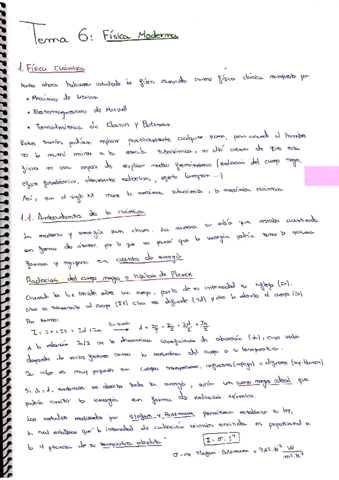 Tema 6: Física Moderna
1. Física Cuántica
Hasta ahora habíamos estudiado la física conocida como física clásica compuesta por
• Mecánica de Newton
• Electromagnetismo de Maxwell
• Termodinámica de Clasius y Boltzman.
Estas teorías podían explicar prácticamente cualquier cosa, pero cuando el hombre
se la mirar a la escala subatómica, se dió cuenta de que esta
física no era capaz de explicar muchos fenómenos (radiación del cuerpo negro,
efecto fotoeléctrico, elementos radiactivos, efecto Compton ...)
Así, en el siglo XX nace la mecánica subatómica, la mecánica cuántica.
1.1. Antecedentes de la Cuántica
La materia y energía son
en forma de átomos, por lo que se pensó que la energía podría tener la misma
forma y agruparse en cuantos de energía
Radiación del cuerpo negro e hipótesis de Planck
Cuando la luz incide sobre un cuerpo, parte de su intensidad se refleja (Ir),
otra se transmite al cuerpo (It) otra se difunde (Id) y otra la absorbe el cuerpo (Ia)
Por tanto:
I = Ir + It + Id + Ia
A la relación Ia/I se le denomina coeficiente de absorción (α), cuyo valor
depende de varios factores como la naturaleza del cuerpo o su temperatura.
Su valor es muy pequeño en cuerpos transparentes,
Si α = 1, entonces se absorbe toda la energía, sería un cuerpo negro ideal que
podría emitir la energía en forma de radiación térmica.
Los estudios realizados por Stefan y Boltzmann permitieron establecer la ley,
la cual establece que la intensidad de radiación térmica emitida es proporcional a
la 4 potencia de su temperatura absoluta
I = σ · T⁴